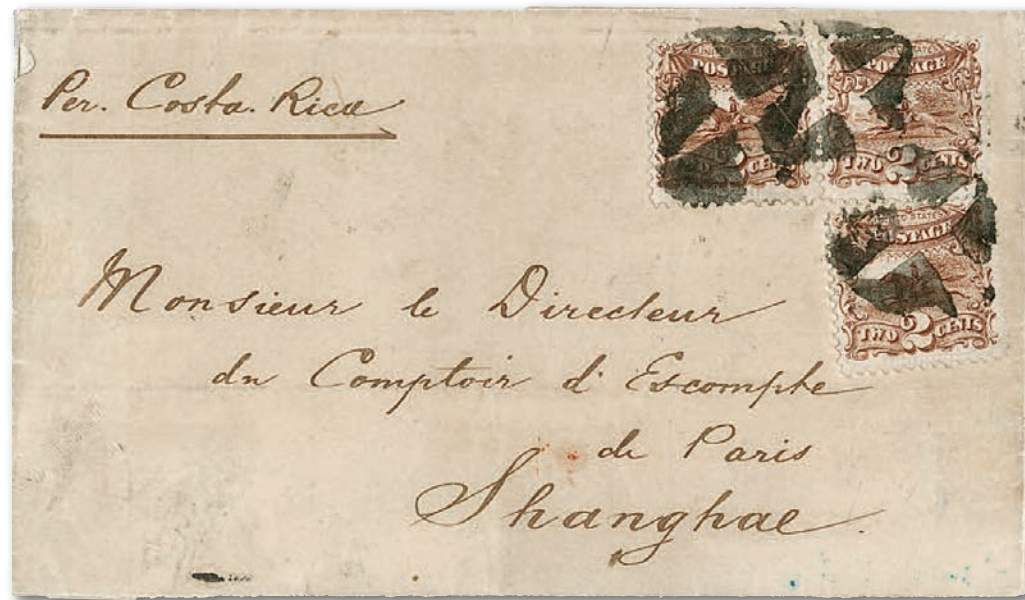 Per. Costa. Rica
UNITED STATES
POSTAGE
CENTS
STATES
POSTAGE
TWO 2 CENTS
STATES
POSTAGE
TWO 2 CENTS
Monsieur le Directeur
du Comptoir d'Escompte
de Paris
Shanghae